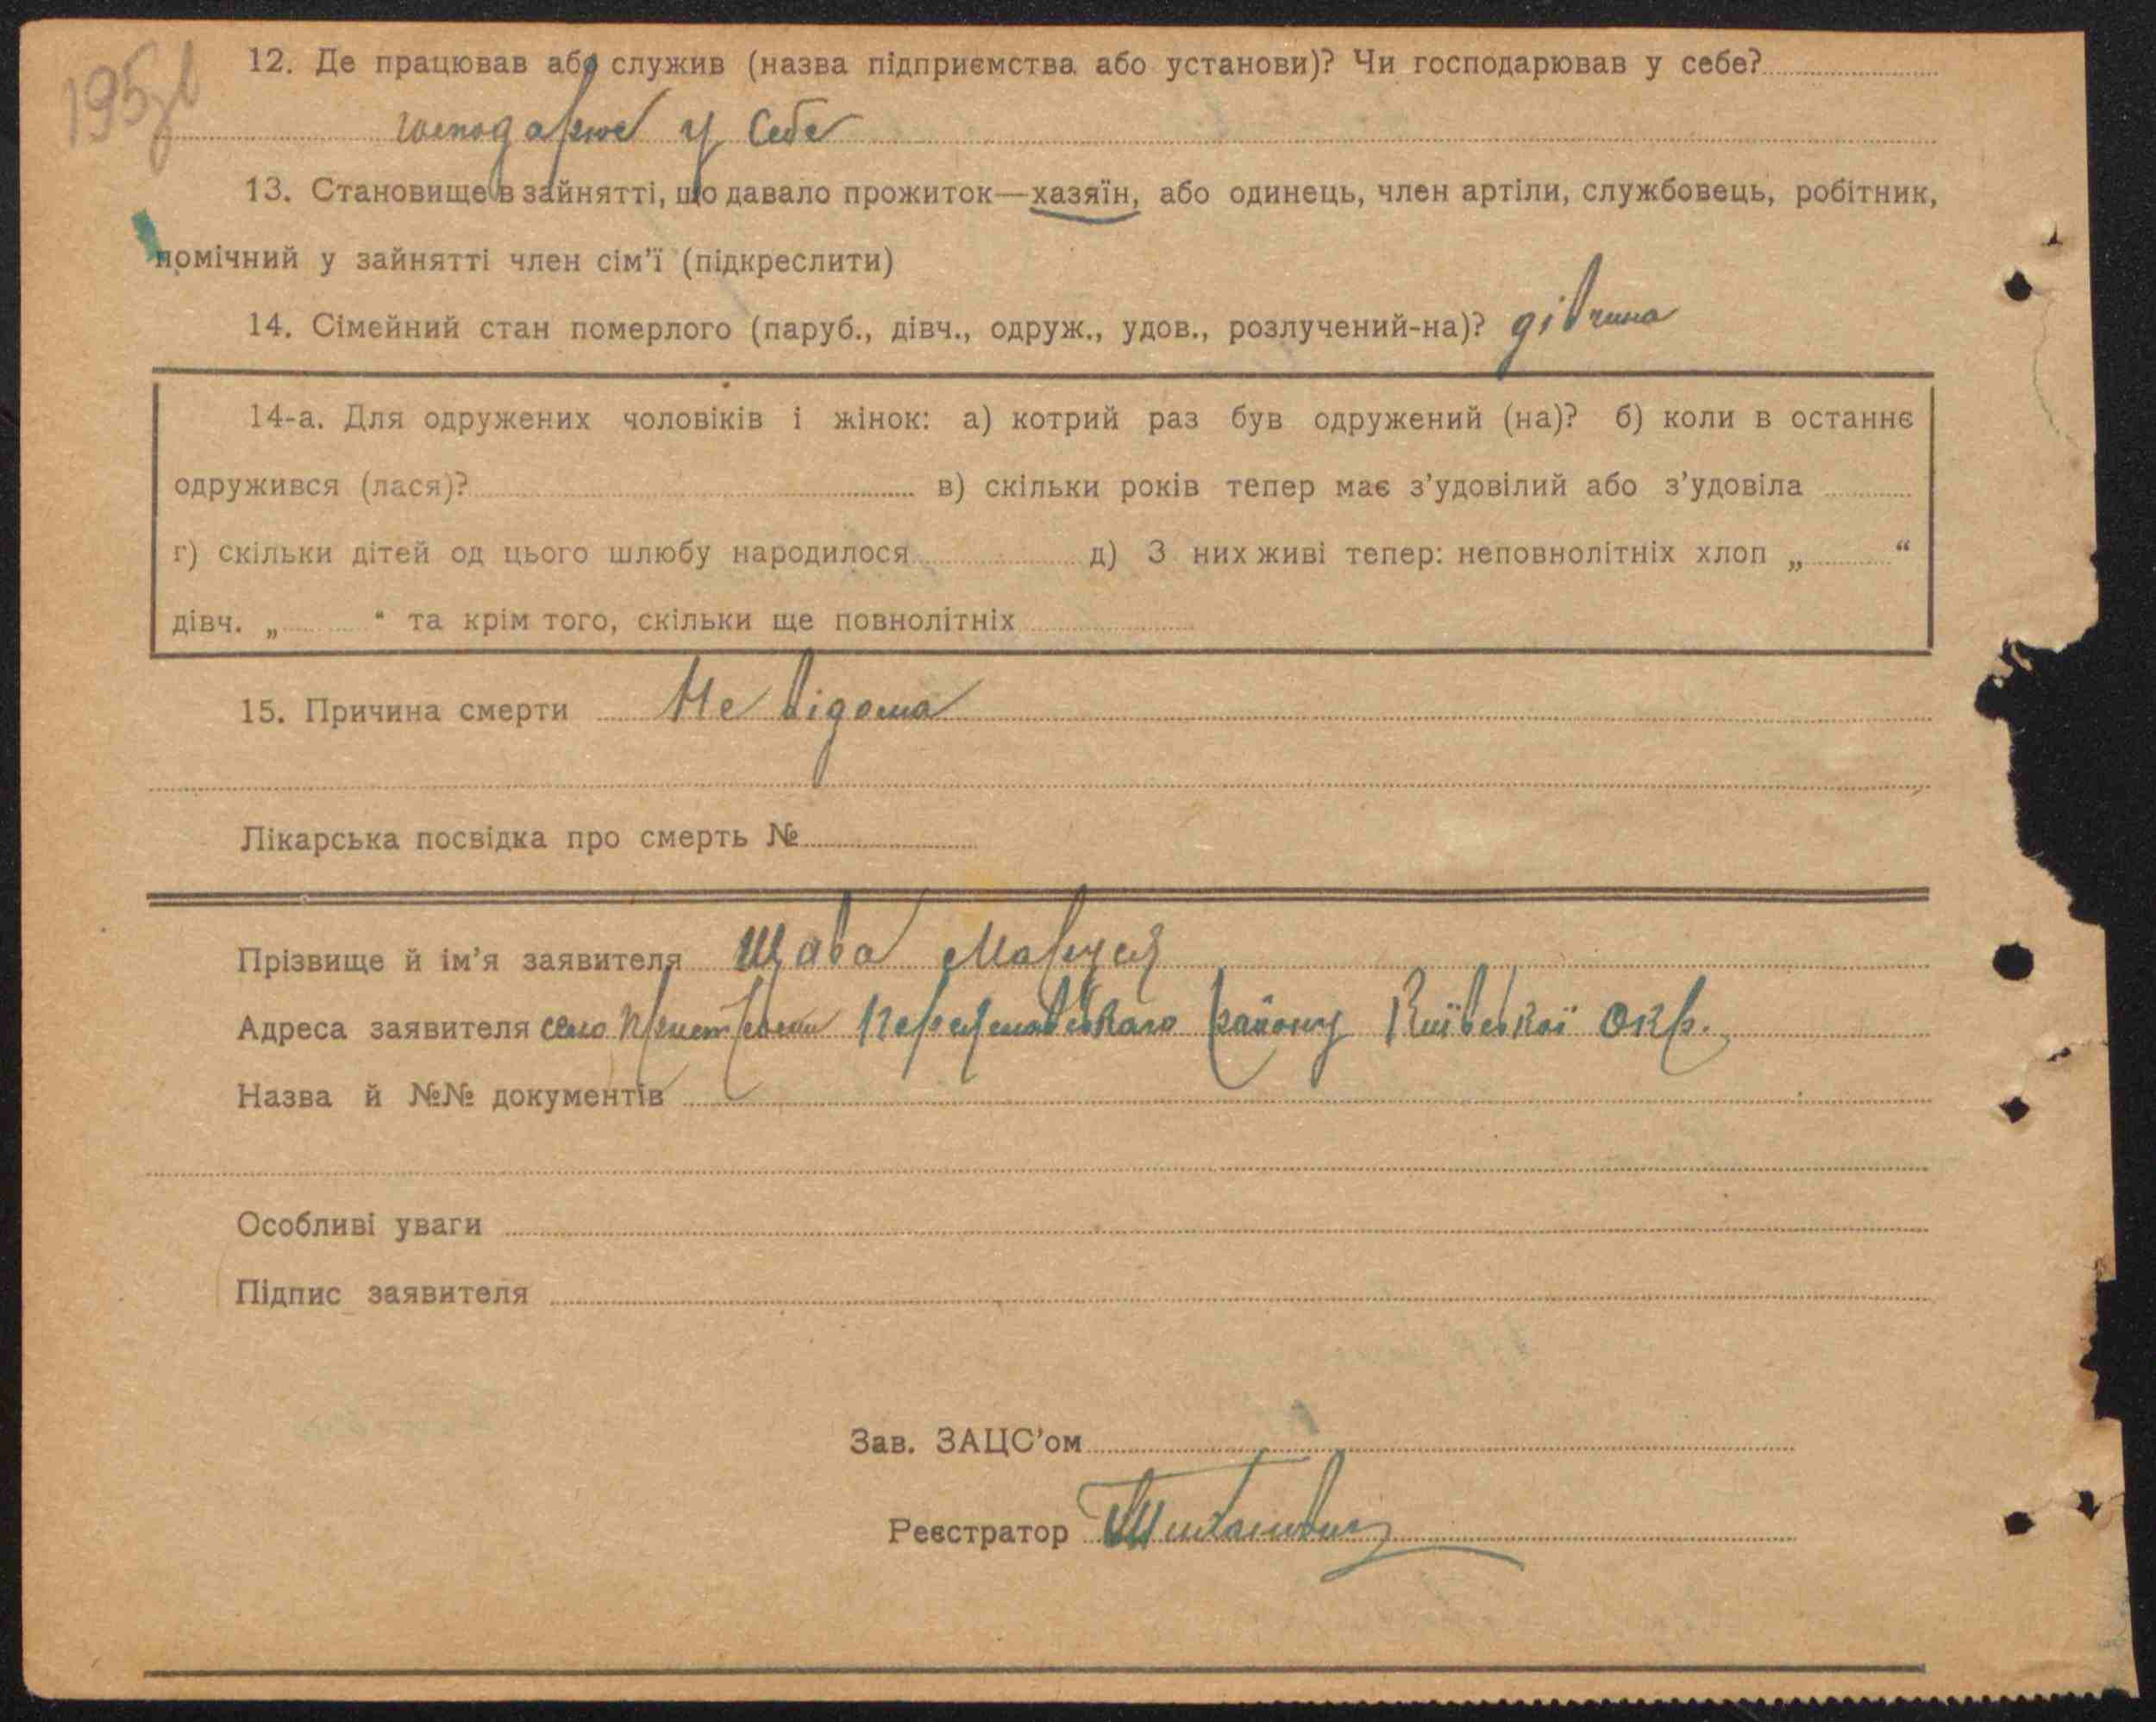 195зв
12. Де працював або служив (назва підприємства або установи)? Чи господарював у себе?
господарює у себе
13. Становище в зайнятті, що давало прожиток—хазяїн, або одинець, член артіли, службовець, робітник,
помічний у зайнятті член сім'ї (підкреслити)
14. Сімейний стан померлого (паруб., дівч., одруж., удов., розлучений-на)? дівчина
14-а. Для одружених чоловіків і жінок: а) котрий раз був одружений (на)? б) коли в останнє
одружився (лася)? в) скільки років тепер має з'удовілий або з'удовіла
г) скільки дітей од цього шлюбу народилося д) З них живі тепер: неповнолітніх хлоп „ “
дівч. „ “ та крім того, скільки ще повнолітніх
15. Причина смерти Не відома
Лікарська посвідка про смерть №
Прізвище й ім'я заявителя Щава Маруся
Адреса заявителя село району Київської Окр.
Назва й №№ документів
Особливі уваги
Підпис заявителя
Зав. ЗАЦС'ом
Реєстратор